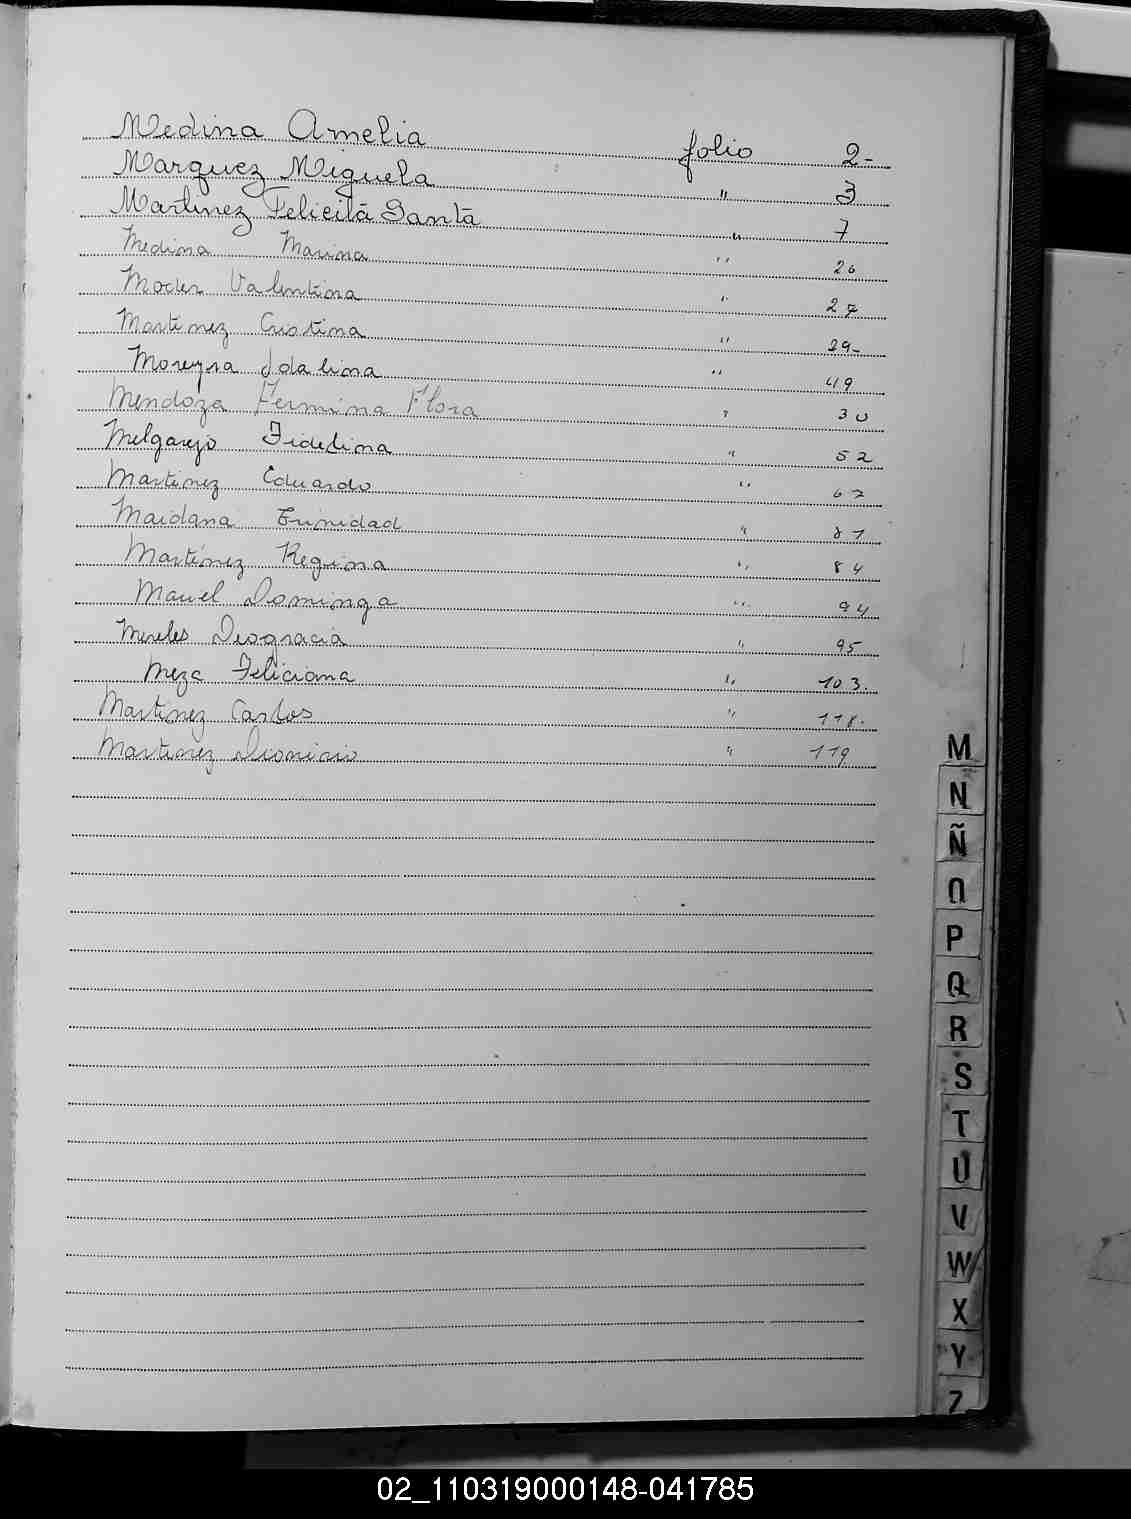 Medina Amelia folio 2-
Marquez Miguela " 3
Martinez Felicitã Santã " 7
Medina Marina " 26
Valentina " 27
Martinez Cristina " 29-
Moreyra Idalina " 49
Mendoza Fermina Flora " 30
Melgarejo Fidelina " 52
Martinez Eduardo " 67
Maidana Trinidad " 81
Martinez Regina " 84
Domingo " 94
Mereles Deogracia " 95
Meza Feliciana " 103.
Martinez Carlos " 118.
Martinez Dionicio " 119
M
N
Ñ
O
P
Q
R
S
T
U
V
W
X
Y
Z
02_110319000148-041785